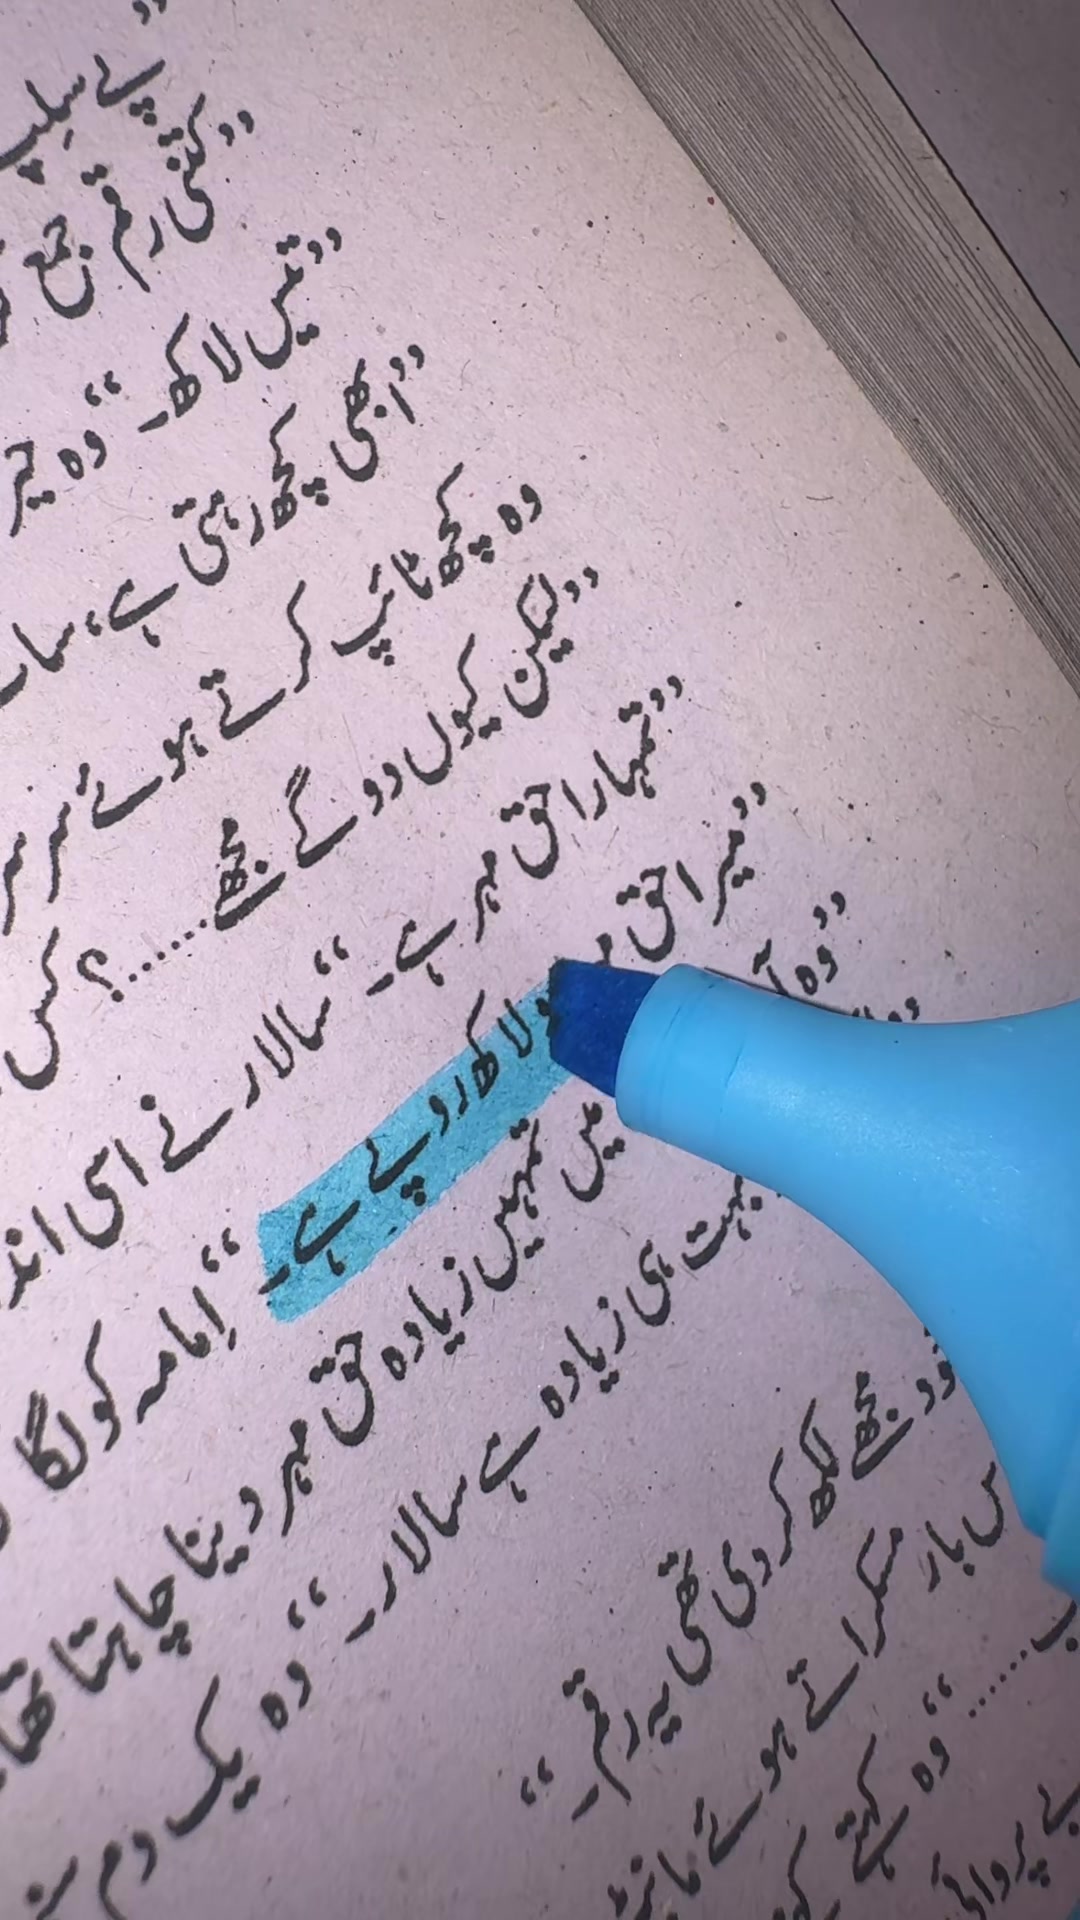 پے سلپ
”کتنی رقم جمع
”تیس لاکھ۔“ وہ
”ابھی کچھ رہتی ہے،
وہ کچھ ٹائپ کرتے ہوئے
”لیکن کیوں دو گے مجھے......؟ کس
”تمہارا حق مہر ہے۔“ سالار نے اسی
”میرا حق لاکھ روپے ہے۔“ اِمامہ کو لگا
”وہ میں تمہیں زیادہ حق مہر دینا چاہتا تھا
بہت ہی زیادہ ہے سالار۔“ وہ یک دم
مجھے لکھ کر دی تھی یہ رقم۔“
بار مسکراتے ہوئے
......“ وہ کہتے